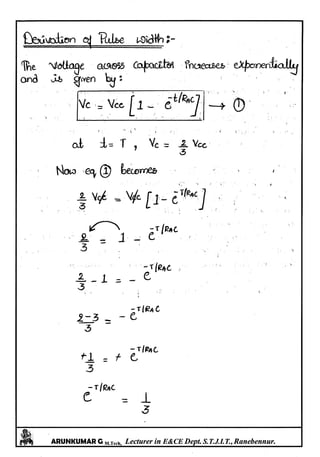 Derivation of Pulse width:-
The voltage across capacitor increases exponentially
and is given by:
Vc = Vcc [1 - e^-t/RAC] → ①
at t = T , Vc = 2/3 Vcc
Now eq ① becomes
2/3 Vcc = Vcc [1 - e^-T/RAC]
2/3 = 1 - e^-T/RAC
2/3 - 1 = - e^-T/RAC
2-3/3 = - e^-T/RAC
+1/3 = + e^-T/RAC
e^-T/RAC = 1/3
ARUNKUMAR G M.Tech, Lecturer in E&CE Dept. S.T.J.I.T., Ranebennur.